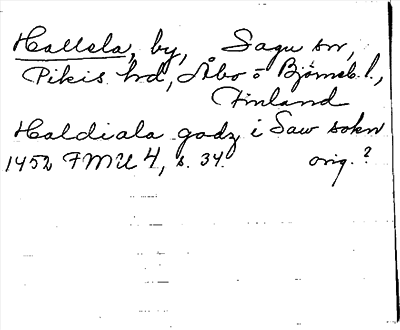 Hallela, by, Sagu sn,
Pikis hd, Åbo o Björneb. l.,
Finland
Haldiala godz i Saw sokn
1452 FMU 4, s. 34. orig.?